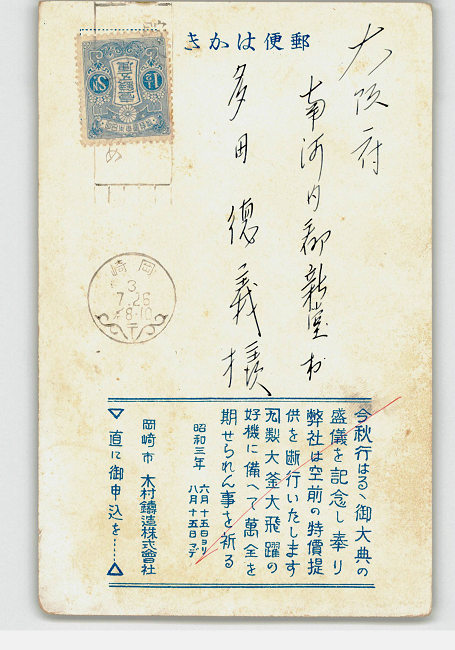 郵便はかき
大阪府
南河内郡新堂村
多田徳義様
岡崎
3
7.26
8-10
今秋行はるゝ御大典の
盛儀を記念し奉り
弊社は空前の特價提
供を断行いたします
大釜大飛躍の
好機に備へて萬全を
期せられん事を祈る
昭和三年 六月十五日ヨリ
八月十五日マデ
岡崎市 木村鑄造株式會社
▽ 直に御申込を……△